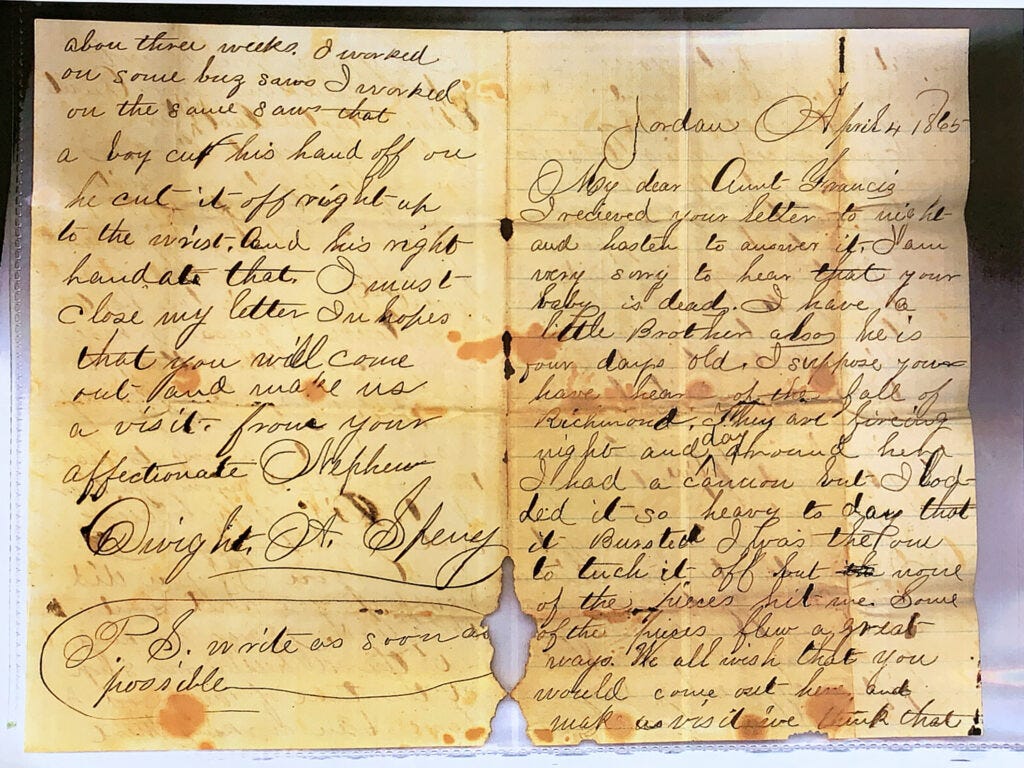 Jordan April 4 1865
My dear Aunt Francis
I recieved your letter to night
and hasten to answer it. I am
very sorry to hear that your
baby is dead. I have a
little Brother also he is
four days old. I suppose you
have hear of the fall of
Richmond. They are firing
night and day around here
I had a cannon but I lod-
ded it so heavy to day that
it Bursted I was the one
to tuch it off but none
of the pieces hit me. Some
of the pieces flew a great
ways. We all wish that you
would come out here and
mak us visit we think that
abou three weeks. I worked
on some buz saws I worked
on the same saw that
a boy cut his hand off on
he cut it off right up
to the wrist. And his right
hand at that. I must
close my letter In hopes
that you will come
out and make us
a visit. from your
affectionate Nephew
Dwight. A. Sperry
P. S. write as soon as
possible